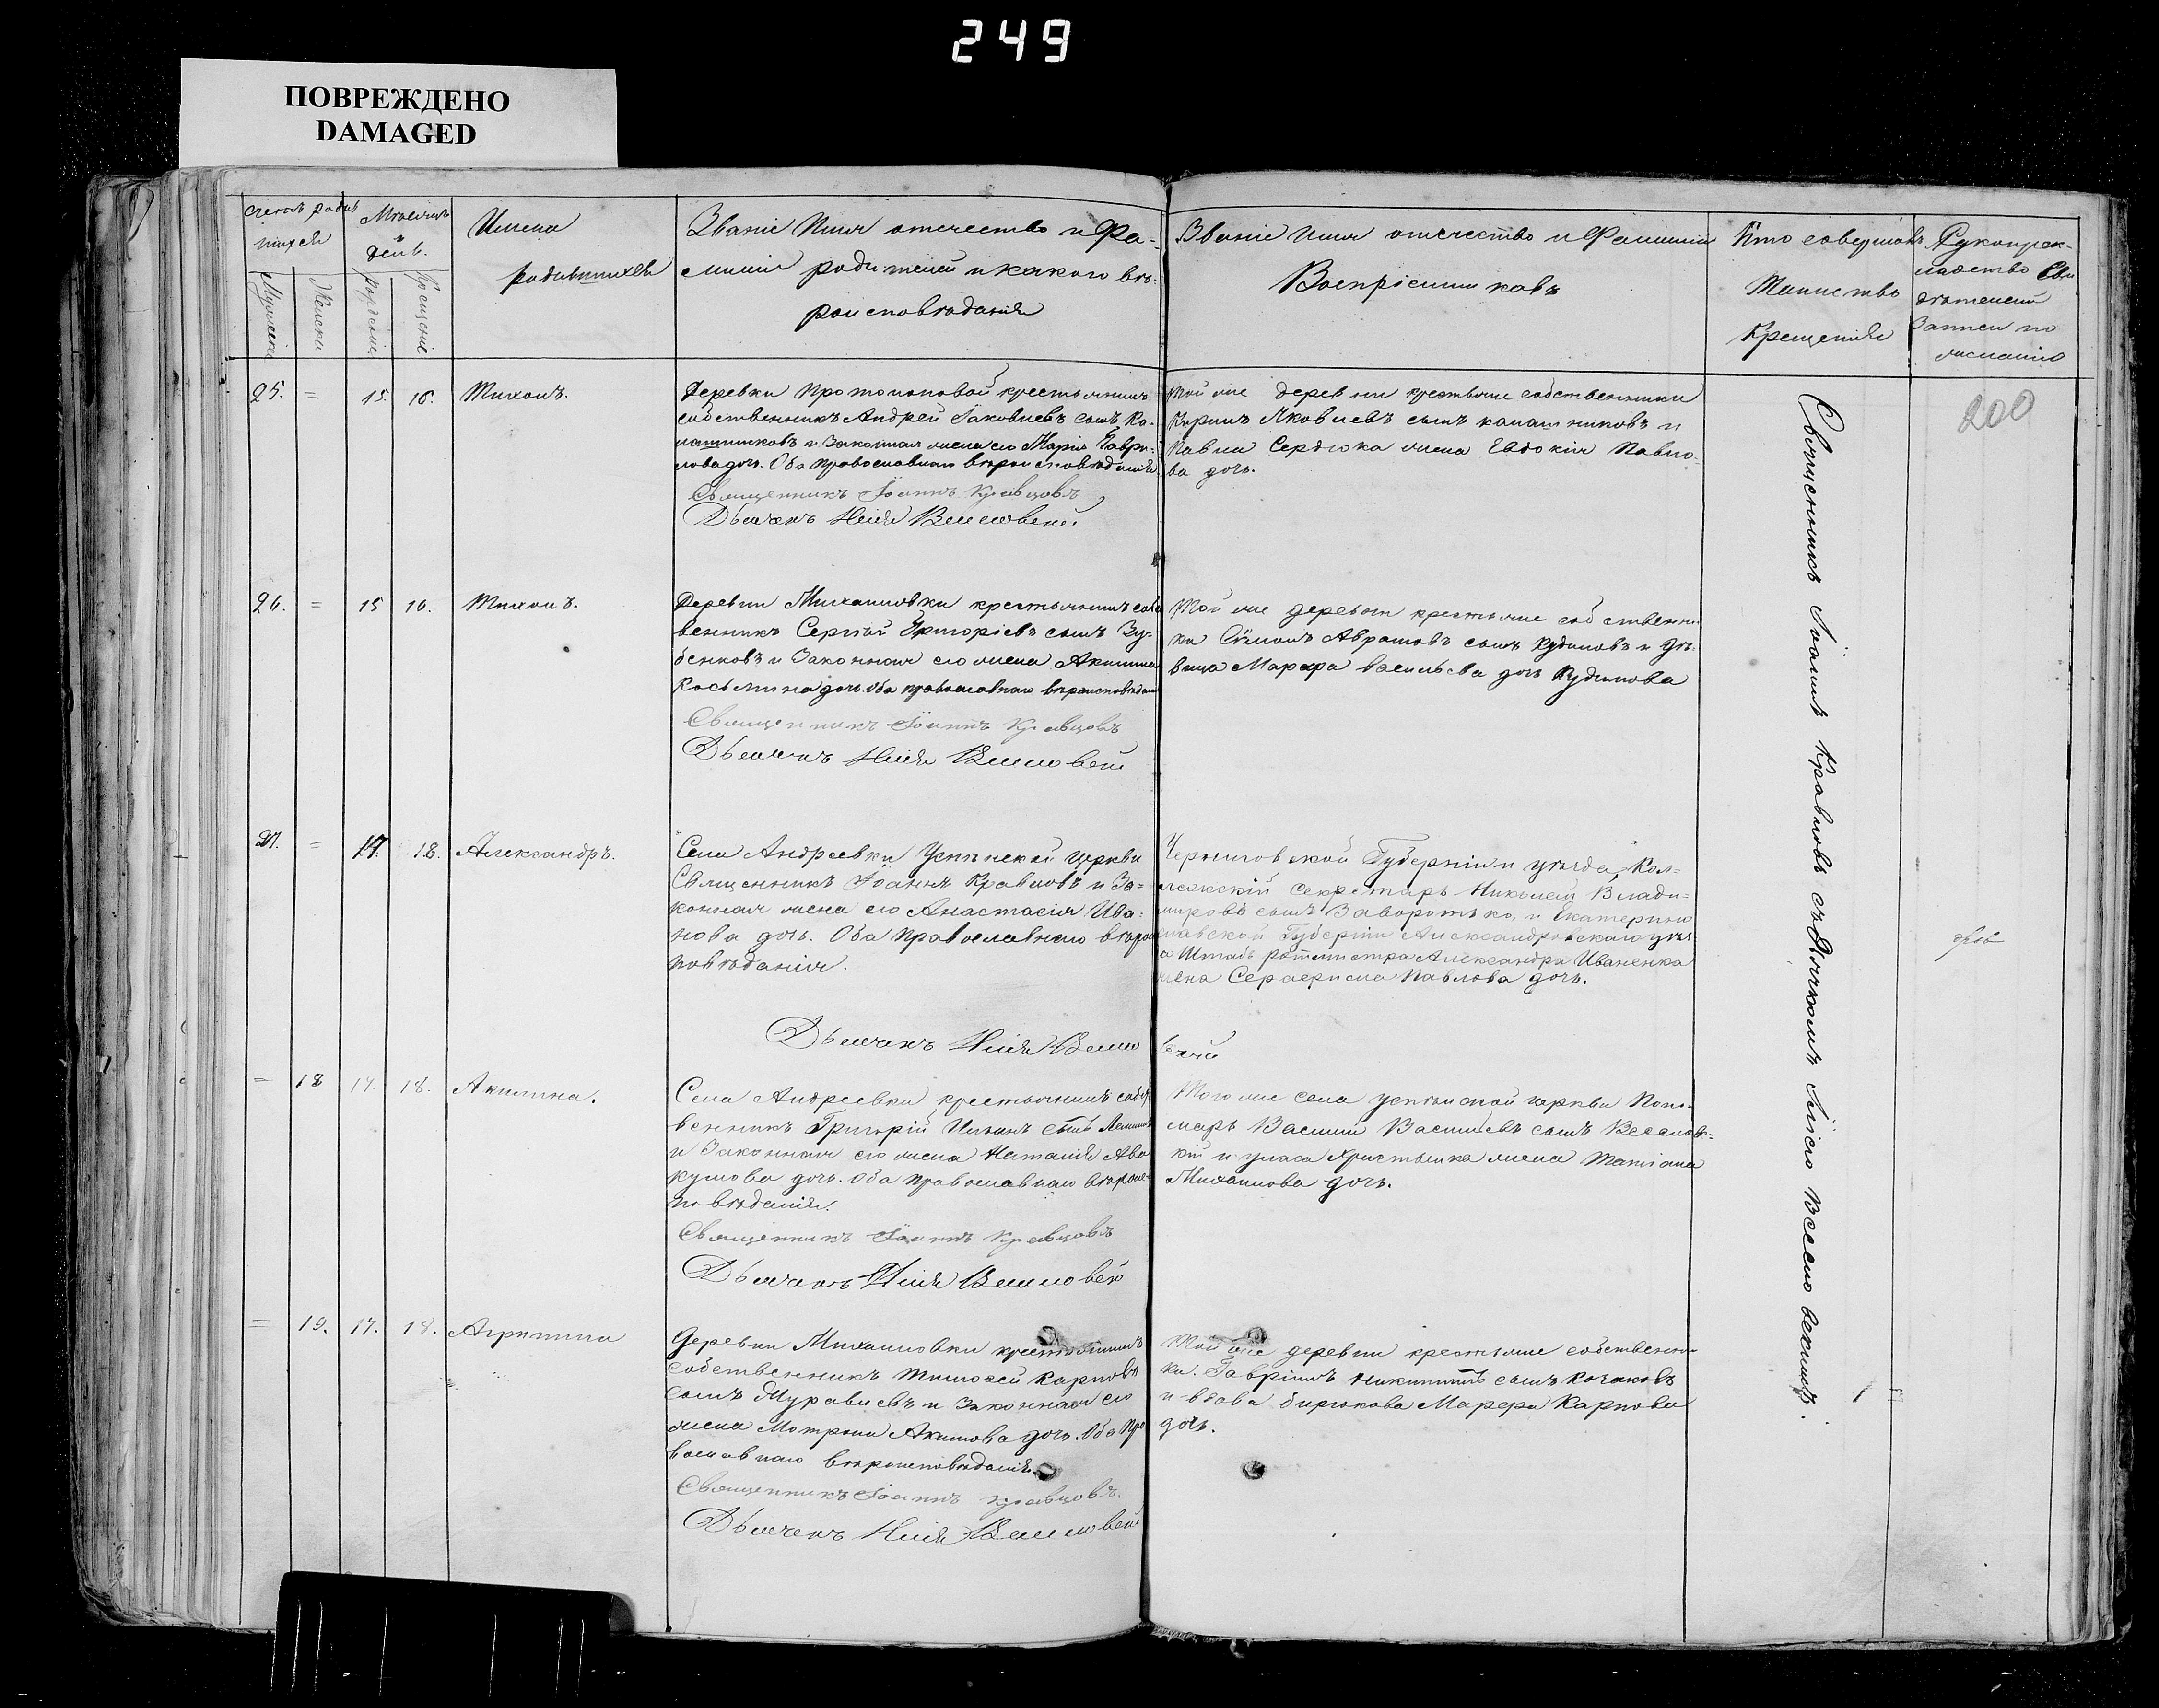 249
ПОВРЕЖДЕНО
DAMAGED
Счетъ родив
шихся
Мужеска
Женска
Мѣсяцъ
и
день.
Рожденіе
Крещеніе
Имена
родившихся
Званіе Имя отечество и Фа-
милія родителей и какого вѣ-
роисповѣданія
Званіе Имя отчество и Фамилія
Воспріемниковъ
Кто совершалъ
Таинство
Крещенія
Рукоприк-
ладство Сви
дѣтелей
Записи по
желанію
200
25. = 15. 16. Тихонъ.
Деревни Протопоповой крестьянинъ
собственникъ Андрей Іаковлевъ сынъ Ка-
лашниковъ и Законная жена его Марія Гаври-
лова дочь. Оба православнаго вѣроисповѣданія
Священникъ Іоаннъ Кравцовъ
Дьячекъ Илія Веселовскій
Той же деревни крестьяне собственники
Кирилъ Яковлевъ сынъ калашниковъ и
Павла Сердюка жена Евдокія Павло-
ва дочь.
26. = 15 16. Тихонъ.
Деревни Михаиловки крестьянинъ собс
венникъ Сергѣй Григоріевъ сынъ Зу-
бенковъ и Законная его жена Акилина
Косьмина дочь. Оба православнаго вѣроисповѣдан
Священникъ Іоаннъ Кравцовъ
Дьячекъ Илія Веселовскій
Той же деревни крестьяне собственни
ки Сѵмонъ Аврамовъ сынъ Кудиновъ и дѣ-
вица Марфа Васильева дочь Кудинова
27. = 17. 18. Александръ.
Села Андреевки Успенской Церкви
Священникъ Іоаннъ Кравцовъ и За=
конная жена его Анастасія Ива=
нова дочь. Оба Православнаго вѣроис
повѣданія.
Дьячекъ Илія Веселовскій
Черниговской Губерніи и уѣзда, Кол-
лежскій Секретарь Николай Влади=
мировъ сынъ Заворотько, и Екатерино
славской Губерніи Александровскаго уѣз
а Штабъ ротмистра Александра Иваненка
жена Серафима Павлова дочь.
= 18 17. 18. Акилина.
Села Андреевки крестьянинъ собст
венникъ Григорій Ильинъ сынъ
и Законная его жена Наталія Авва
кумова дочь. Оба Православнаго вѣроис-
повѣданія.
Священникъ Іоаннъ Кравцовъ
Дьячекъ Илія Веселовскій
Того же села успенской церкви Поно-
марь Василій Васильевъ сынъ Веселовс=
кій и уласа Христьенка жена Татіана
Михаилова дочь.
= 19. 17. 18. Агрипина
Деревни Михаиловки крестьянинъ
собственникъ Тимофей Карповъ
сынъ Муравьевъ и Законная его
жена Матрона Акимова дочь. Оба Пра
вославнаго вѣроисповѣданія.
Священникъ Іоаннъ Кравцовъ.
Дьячекъ Илія Веселовскій
Той же деревни крестьяне собственни-
ки. Гавріилъ Никитинъ сынъ Козаковъ
и вдова бирюкова Марфа Карпова
дочь.
Священникъ Іоаннъ Кравцовъ съ Дьячкомъ Иліею Веселовскимъ.